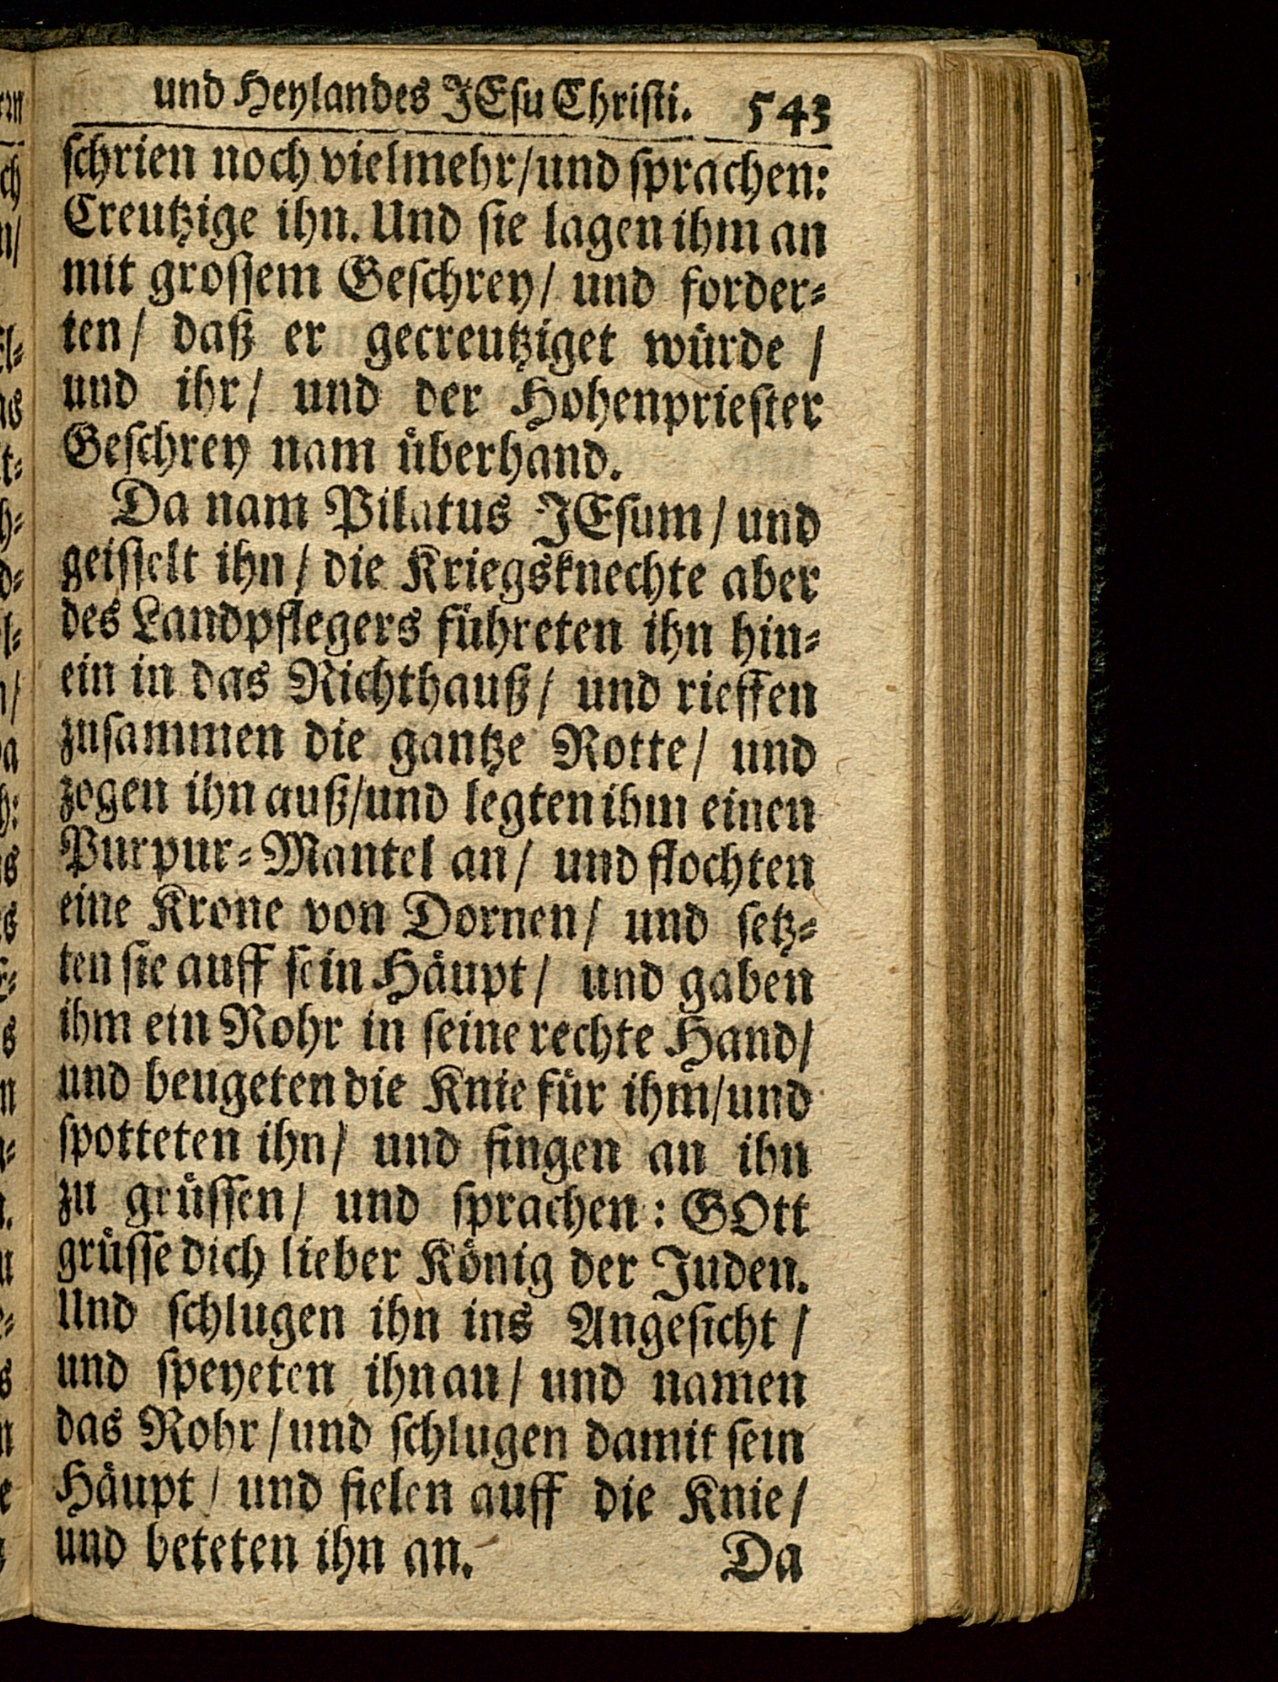 und Heylandes JEsu Christi. 543
schrien noch vielmehr/und sprachen:
Creutzige ihn. Und sie lagen ihm an
mit grossem Geschrey/ und forder-
ten/ daß er gecreutziget würde /
und ihr/ und der Hohenpriester
Geschrey nam überhand.
Da nam Pilatus JEsum/ und
geisselt ihn/ die Kriegsknechte aber
des Landpflegers führeten ihn hin-
ein in das Richthauß/ und rieffen
zusammen die gantze Rotte/ und
zogen ihn auß/und legten ihm einen
Purpur-Mantel an/ und flochten
eine Krone von Dornen/ und setz-
ten sie auff sein Häupt/ und gaben
ihm ein Rohr in seine rechte Hand/
und beugeten die Knie für ihm/und
spotteten ihn/ und fingen an ihn
zu grüssen/ und sprachen: GOtt
grüsse dich lieber König der Juden.
Und schlugen ihn ins Angesicht /
und speyeten ihn an/ und namen
das Rohr/und schlugen damit sein
Häupt/ und fielen auff die Knie/
und beteten ihn an. Da